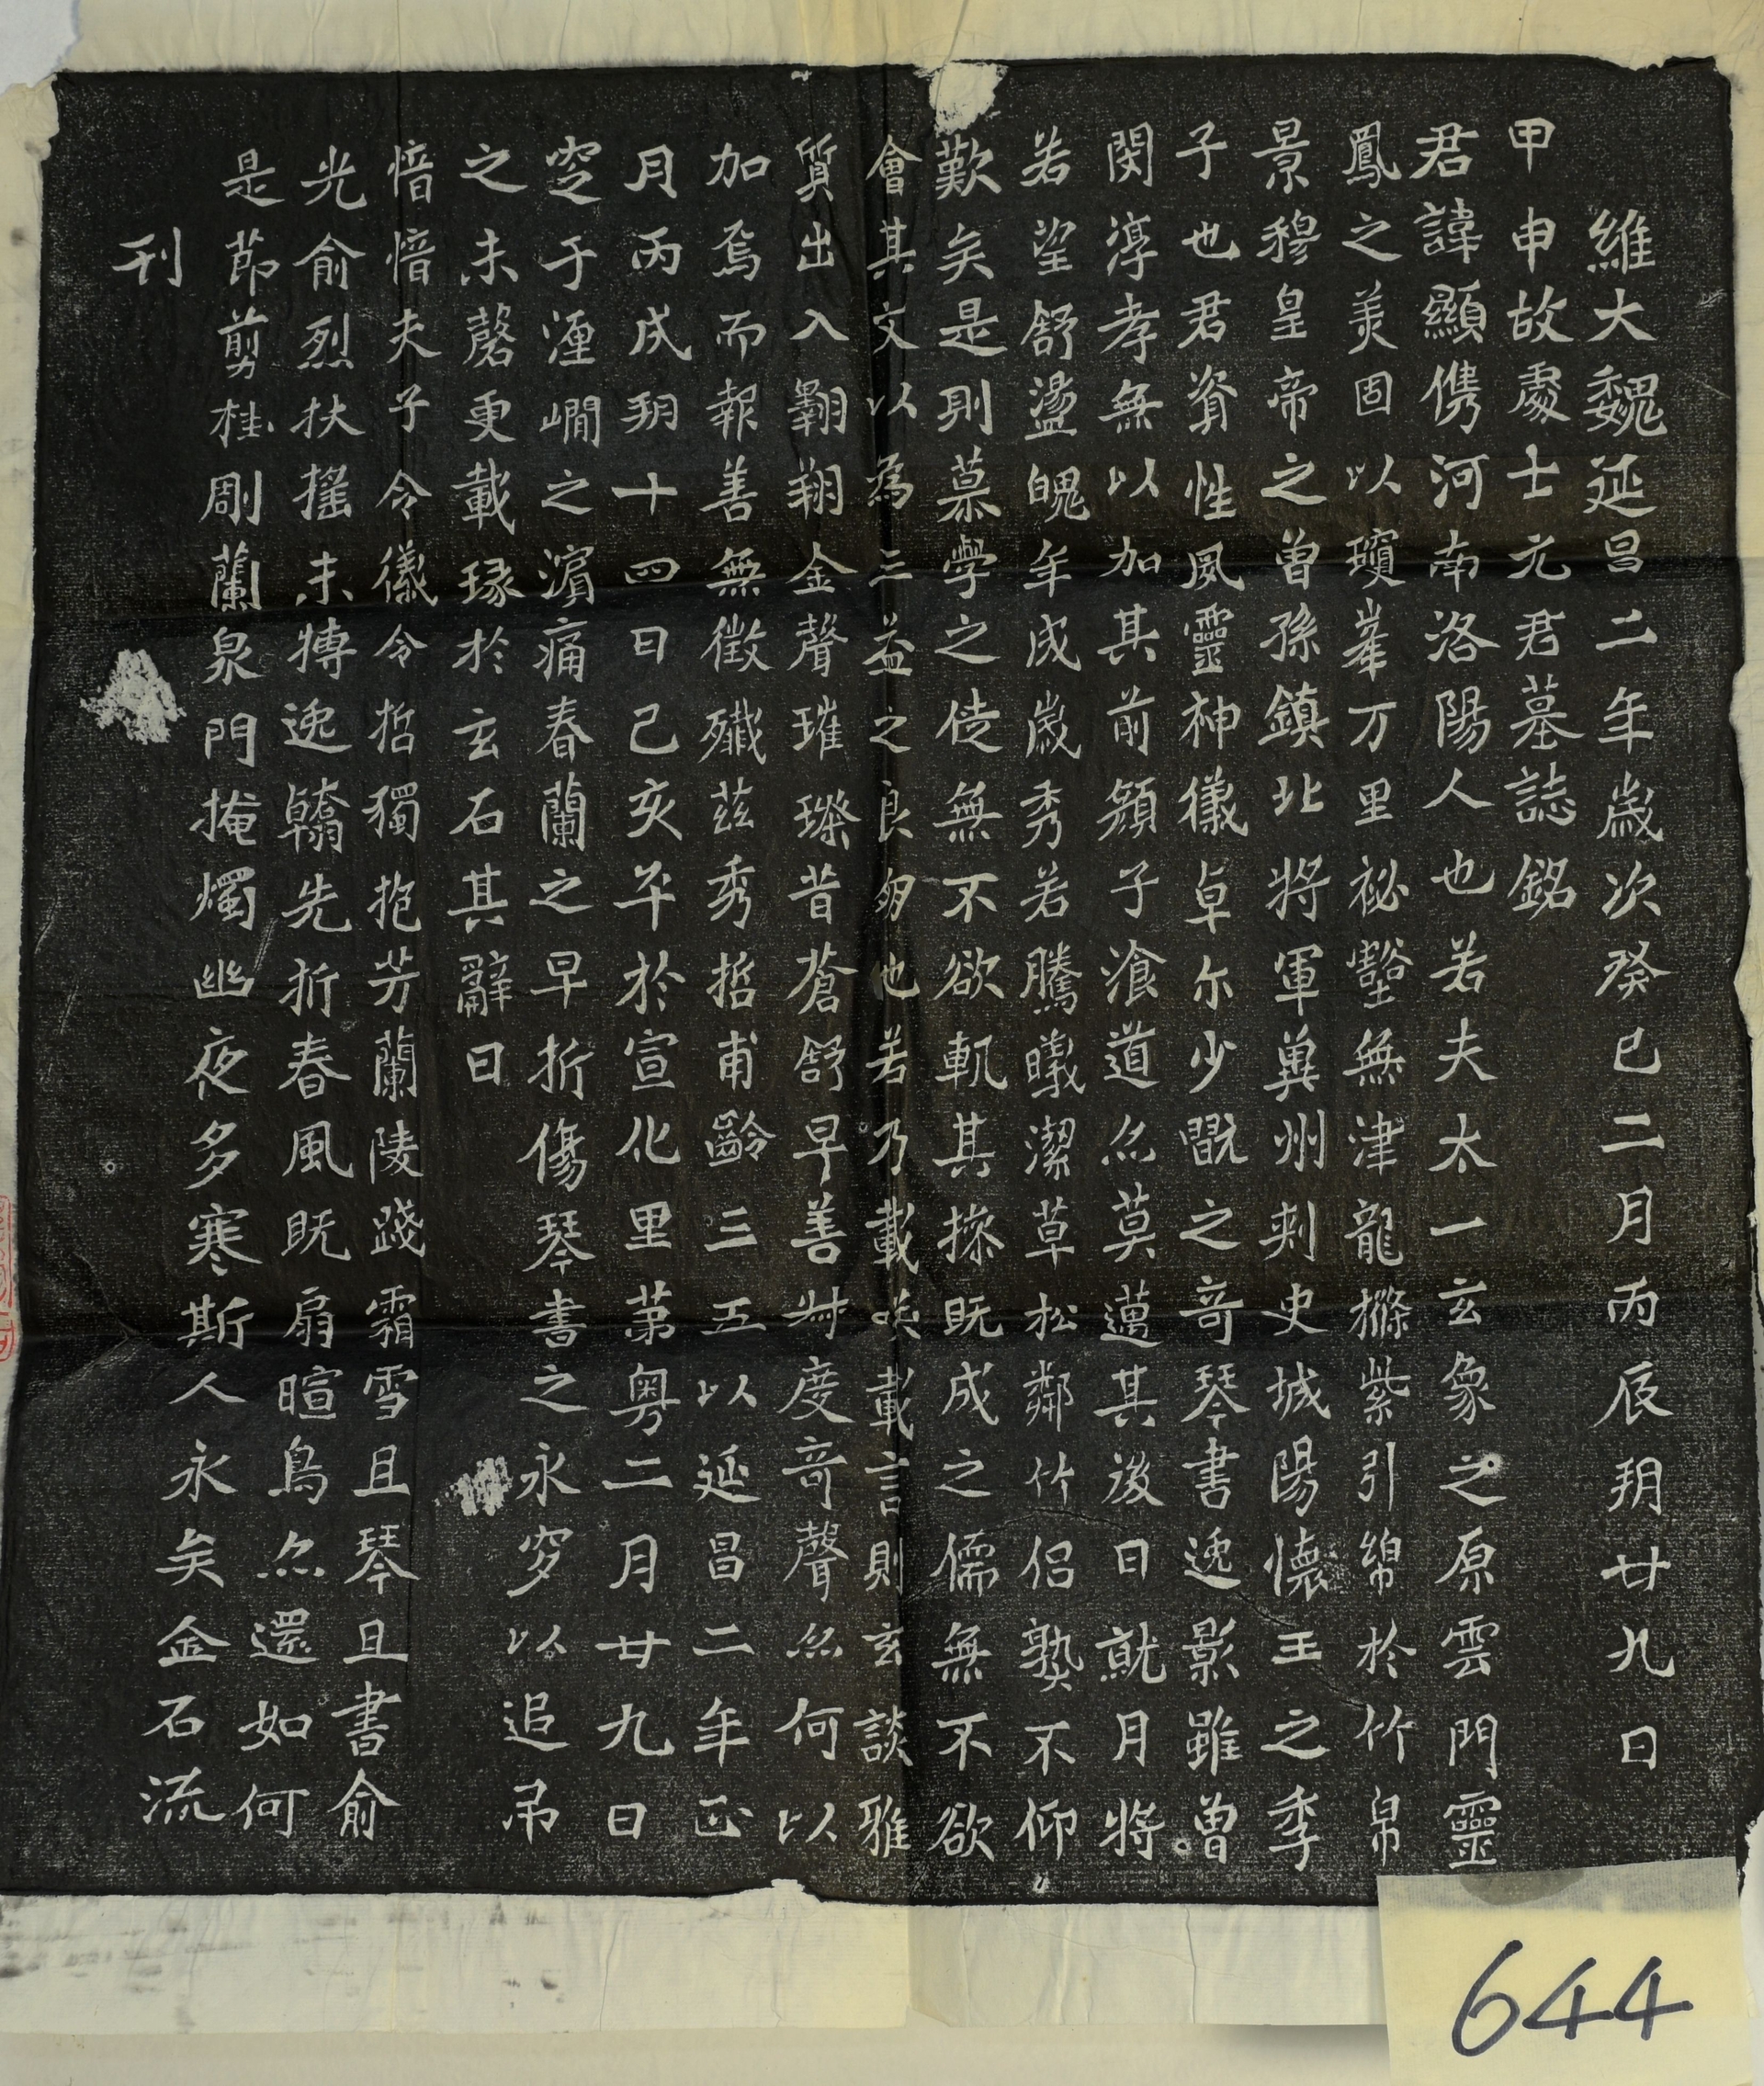 維大魏延昌二年歲次癸巳二月丙辰朔廿九日
甲申故處士元君墓誌銘
君諱顯儁河南洛陽人也若夫太一玄象之原雲門靈
鳳之美固以瓊峯万里祕壑無津龍𢢼紫引綿於竹帛
景穆皇帝之曾孫鎮北將軍冀州刺史城陽懷王之季
子也君資性夙靈神儀卓尔少翫之奇琴書逸影雖曾
閔淳孝無以加其前顏子飡道亦莫邁其後日就月將
若望舒盪魄年成歲秀若騰曦潔草松鄰竹侶孰不仰
歎矣是則慕學之徒無不欲軌其操既成之儒無不欲
會其文以為三益之良朋也若乃載笑載言則玄談雅
質出入翱翔金聲璀璨昔蒼舒早善叔度奇聲亦何以
加焉而報善無徵殲茲秀哲甫齡三五以延昌二年正
月丙戌朔十四日己亥卒於宣化里第粵二月廿九日
窆于瀍㵎之濱痛春蘭之早折傷琴書之永穸以追弔
之未罄更載瑑於玄石其辭曰
愔愔夫子令儀令哲獨抱芳蘭陵踐霜雪且琴且書俞
光俞烈扶搖未搏逸翰先折春風既扇暄鳥亦還如何
是節剪桂彫蘭泉門掩燭幽夜多寒斯人永矣金石流
刊
644